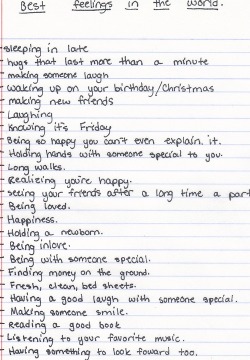 Best feelings in the world.
sleeping in late
hugs that last more than a minute
making someone laugh
waking up on your birthday/Christmas
making new friends
Laughing
Knowing it's Friday
Being so happy you can't even explain it.
Holding hands with someone special to you.
Long walks.
Realizing you're happy.
seeing your friends after a long time a part
Being loved.
Happiness.
Holding a newborn.
Being inlove.
Being with someone special.
Finding money on the ground.
Fresh, clean, bed sheets.
Having a good laugh with someone special.
Making someone smile.
Reading a good book
Listening to your favorite music.
Having something to look foward too.